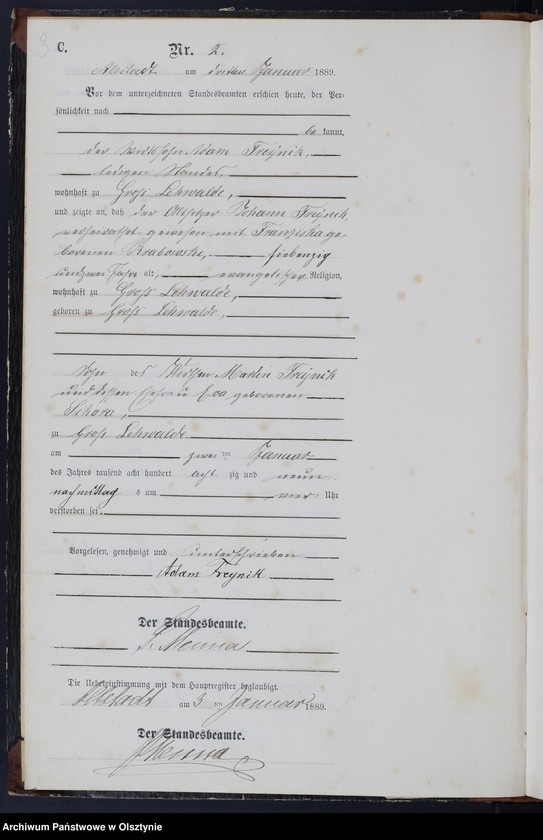 3
C.
Nr. 2.
Altstadt am dritten Januar 1889.
Vor dem unterzeichneten Standesbeamten erschien heute, der Per-
sönlichkeit nach
be kannt,
der Wirthssohn Adam Freynik,
ledigen Standes,
wohnhaft zu Groß Lehwalde,
und zeigte an, daß der Altsitzer Johann Freynik
verheirathet gewesen mit Franziska ge-
borenen Grabowski, siebenzig
und zwei Jahre alt, evangelischer Religion,
wohnhaft zu Groß Lehwalde,
geboren zu Groß Lehwalde,
Sohn des Martin Freynik
und dessen Ehefrau Eva geborenen
Sikora,
zu Groß Lehwalde
am zwei ten Januar
des Jahres tausend acht hundert acht zig und neun
nachmittags um vier Uhr
verstorben sei.
Vorgelesen, genehmigt und unterschrieben
Adam Freynik
Der Standesbeamte.
Die Uebereinstimmung mit dem Hauptregister beglaubigt.
Altstadt am 3 ten Januar 1889.
Der Standesbeamte.
Archiwum Państwowe w Olsztynie